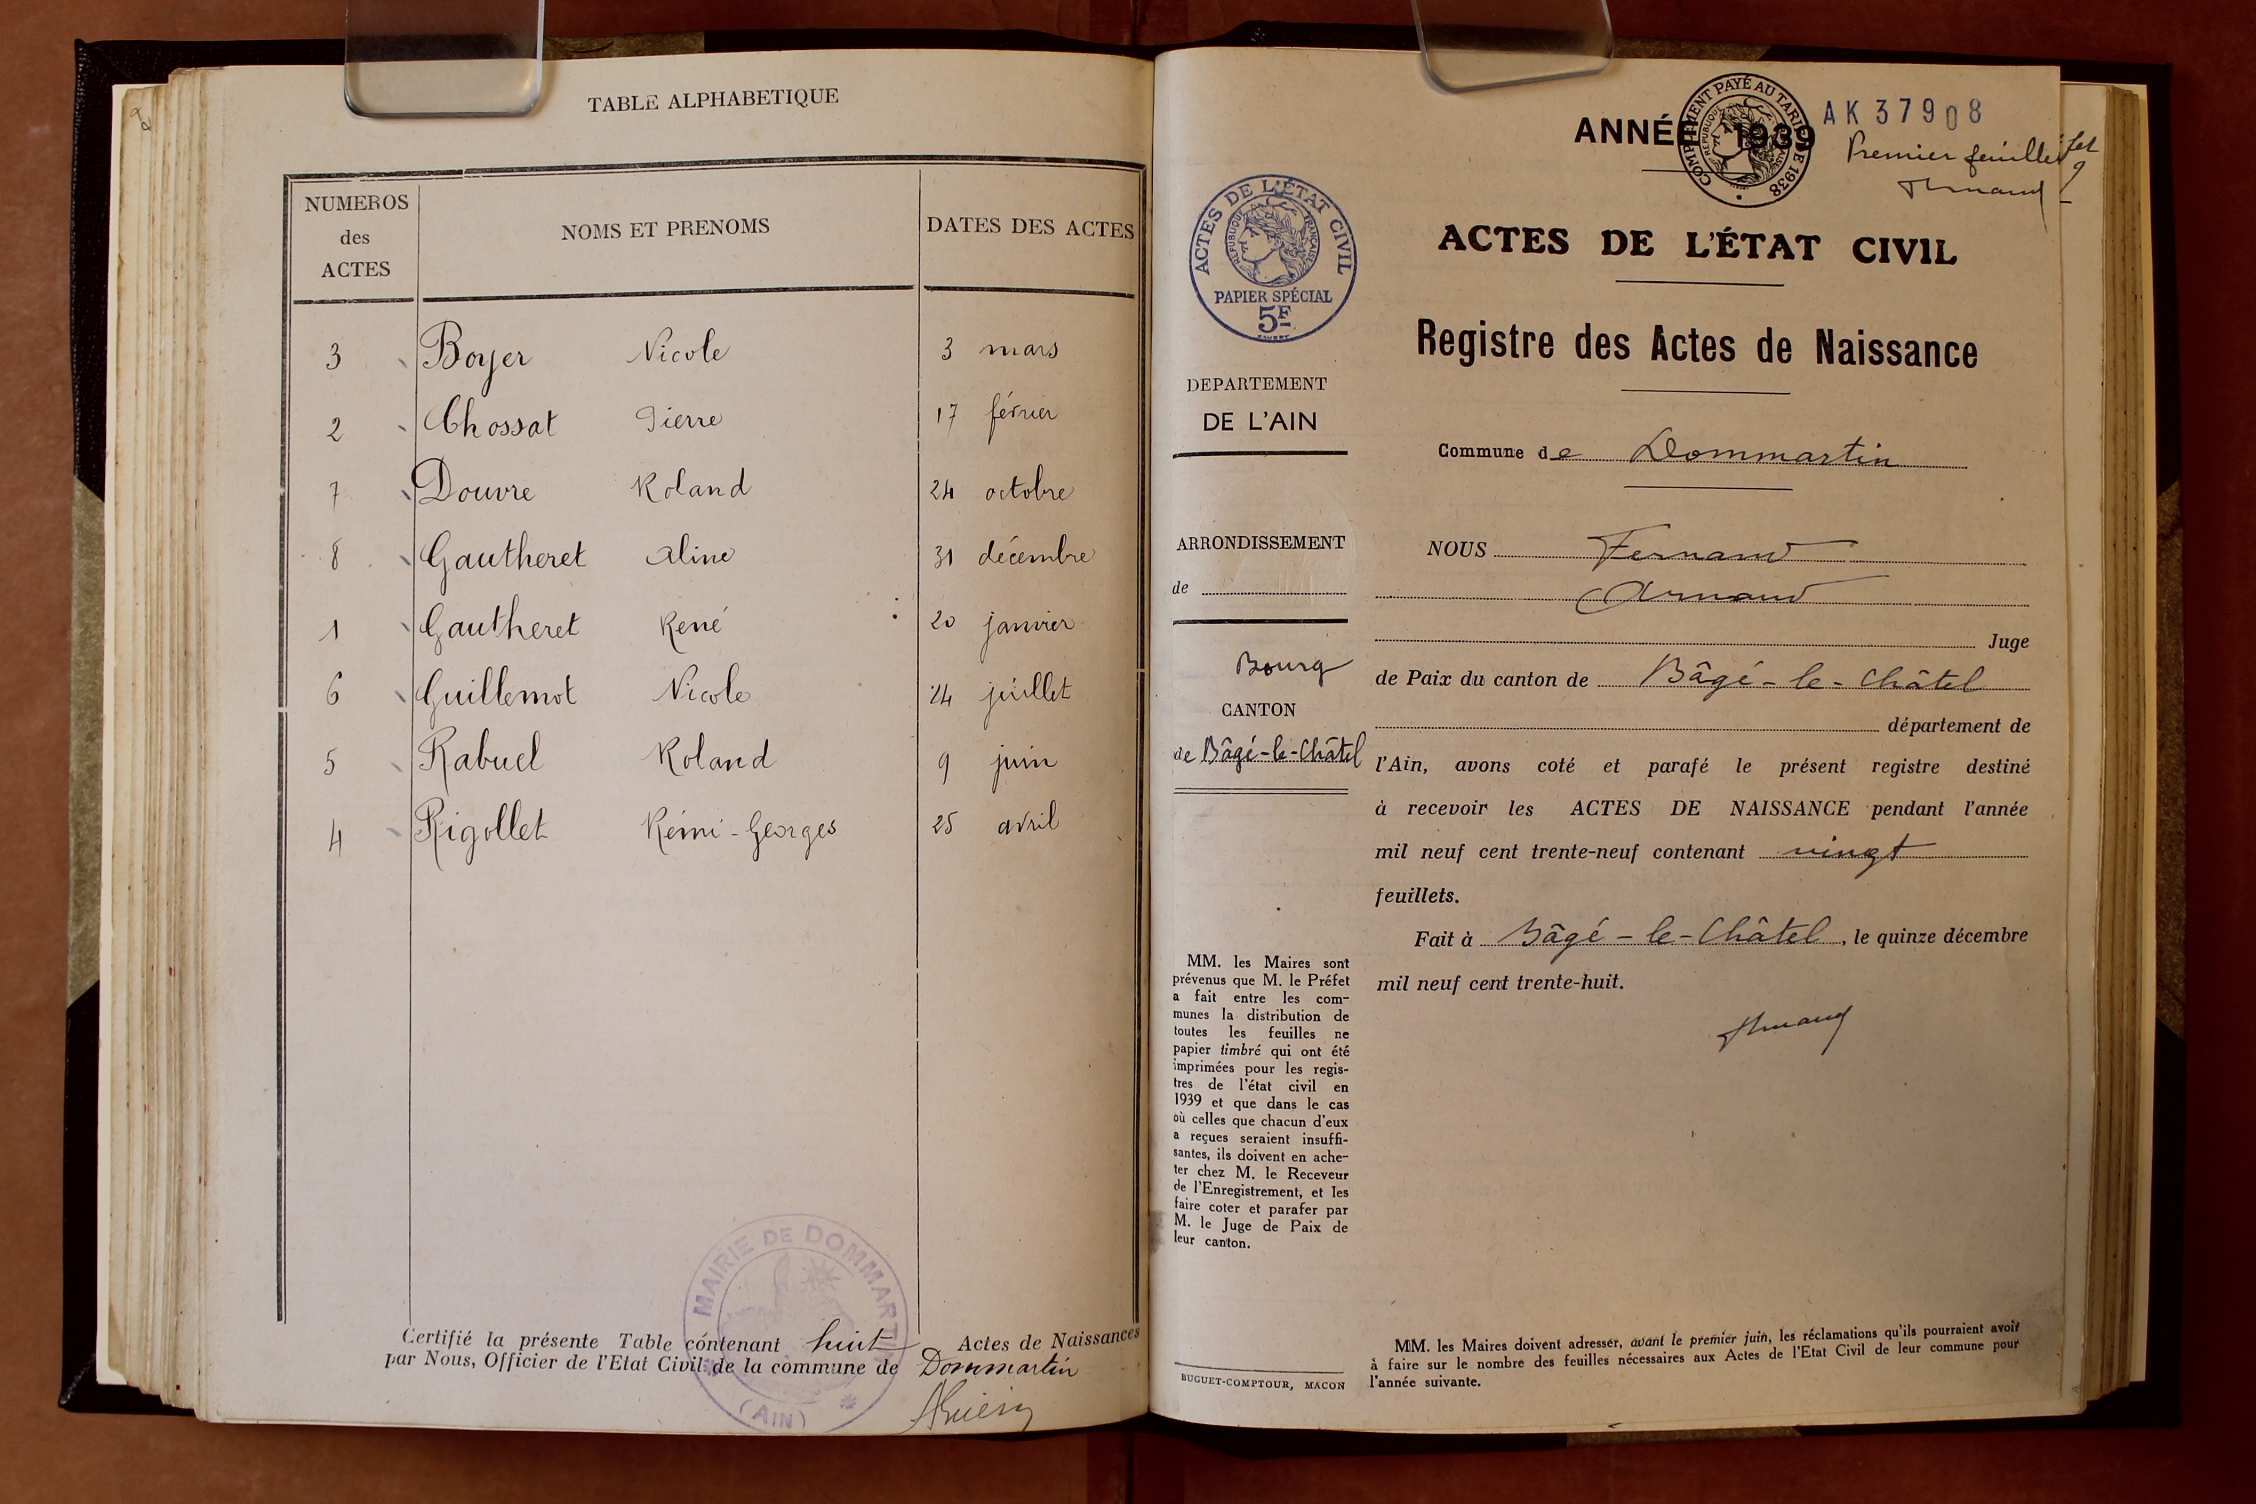 TABLE ALPHABETIQUE
NUMEROS des ACTES
NOMS ET PRENOMS
DATES DES ACTES
3 Boyer Nicole 3 mars
2 Chossat Pierre 17 février
7 Douvre Roland 24 octobre
8 Gautheret Aline 31 décembre
1 Gautheret René 20 janvier
6 Guillemot Nicole 24 juillet
5 Rabuel Roland 9 juin
4 Rigollet Rémi-Georges 25 avril
Certifié la présente Table contenant huit Actes de Naissances
par Nous, Officier de l'Etat Civil de la commune de Dommartin
MAIRIE DE DOMMART
(AIN)
ANNÉE 1939
COMPLEMENT PAYÉ AU TARIF DE 1938
AK 37908
Premier feuillet
Armand
ACTES DE L'ÉTAT CIVIL
REPUBLIQUE FRANÇAISE
PAPIER SPÉCIAL
5F
DEPARTEMENT
DE L'AIN
ARRONDISSEMENT
de
Bourg
CANTON
de Bâgé-le-Châtel
MM. les Maires sont
prévenus que M. le Préfet
a fait entre les com-
munes la distribution de
toutes les feuilles ne
papier timbré qui ont été
imprimées pour les regis-
tres de l'état civil en
1939 et que dans le cas
où celles que chacun d'eux
a reçues seraient insuffi-
santes, ils doivent en ache-
ter chez M. le Receveur
de l'Enregistrement, et les
faire coter et parafer par
M. le Juge de Paix de
leur canton.
BUGUET-COMPTOUR, MACON
ACTES DE L'ÉTAT CIVIL
Registre des Actes de Naissance
Commune de Dommartin
NOUS Fernand
Armand
Juge
de Paix du canton de Bâgé-le-Châtel
département de
l'Ain, avons coté et parafé le présent registre destiné
à recevoir les ACTES DE NAISSANCE pendant l'année
mil neuf cent trente-neuf contenant vingt
feuillets.
Fait à Bâgé-le-Châtel, le quinze décembre
mil neuf cent trente-huit.
Armand
MM. les Maires doivent adresser, avant le premier juin, les réclamations qu'ils pourraient avoir
à faire sur le nombre des feuilles nécessaires aux Actes de l'Etat Civil de leur commune pour
l'année suivante.